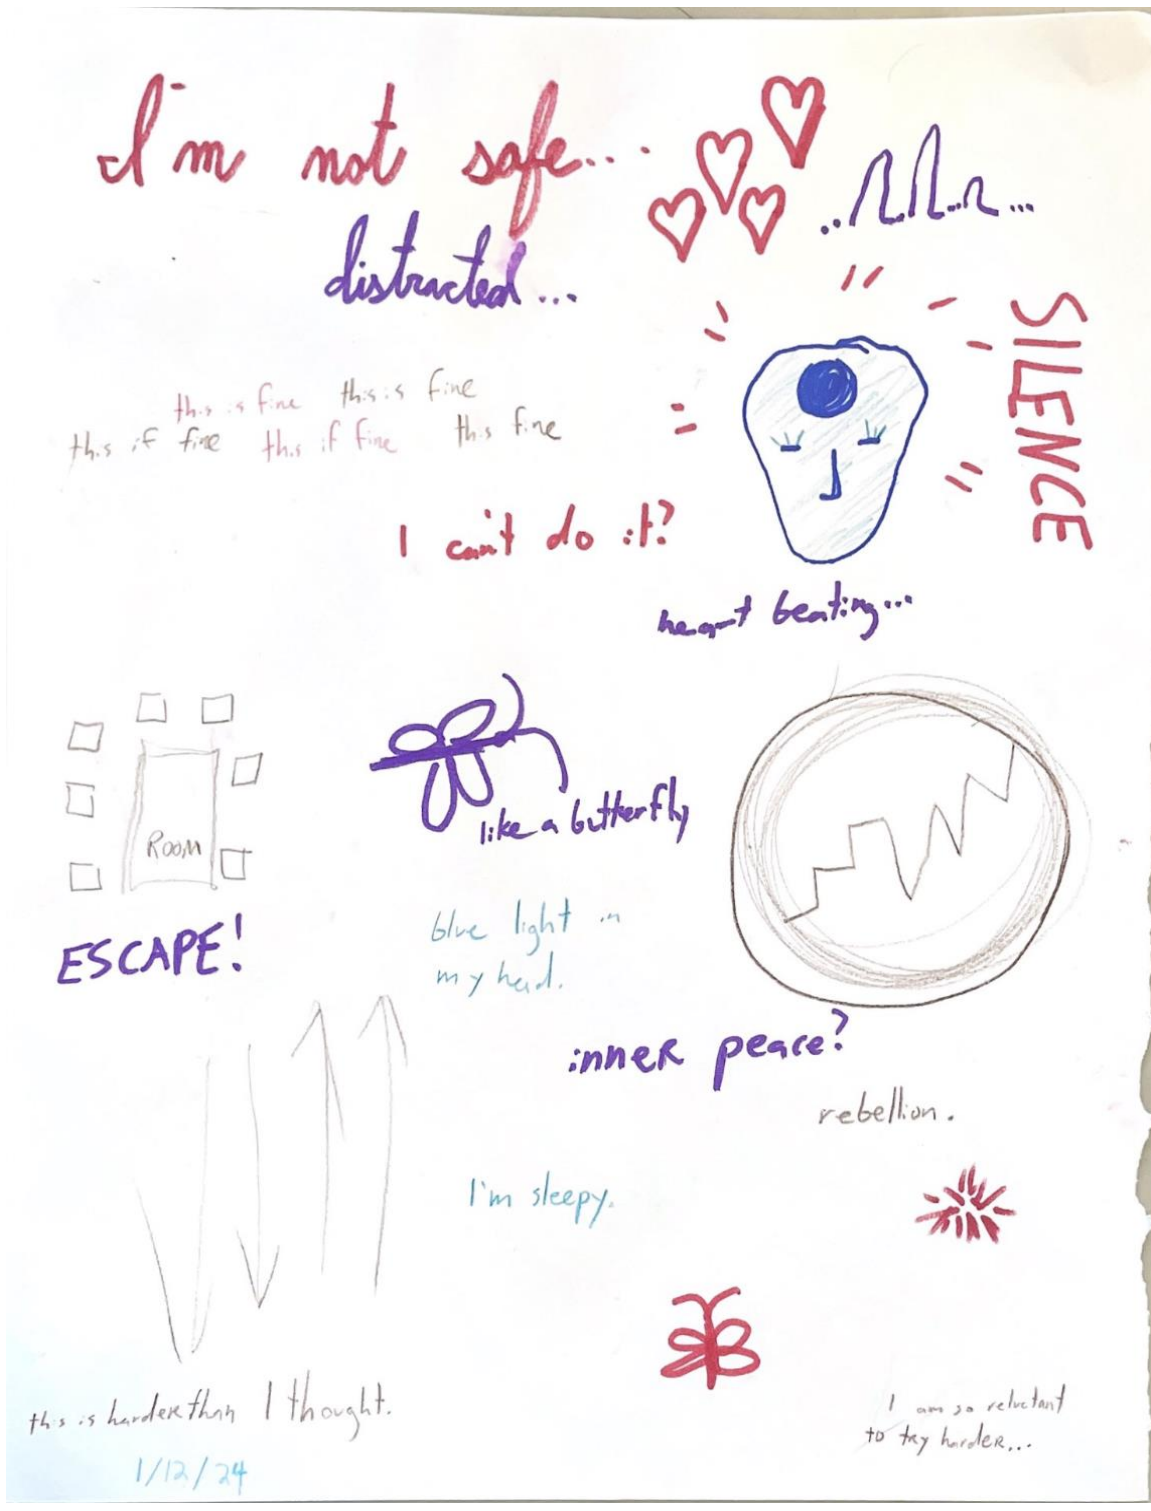 I'm not safe...
distracted...
SILENCE
this is fine this is fine
this if fine this if fine this fine
I can't do it?
heart beating...
ROOM
like a butterfly
ESCAPE!
blue light in
my head.
inner peace?
rebellion.
I'm sleepy.
this is harder than I thought.
I am so reluctant
to try harder...
1/12/24